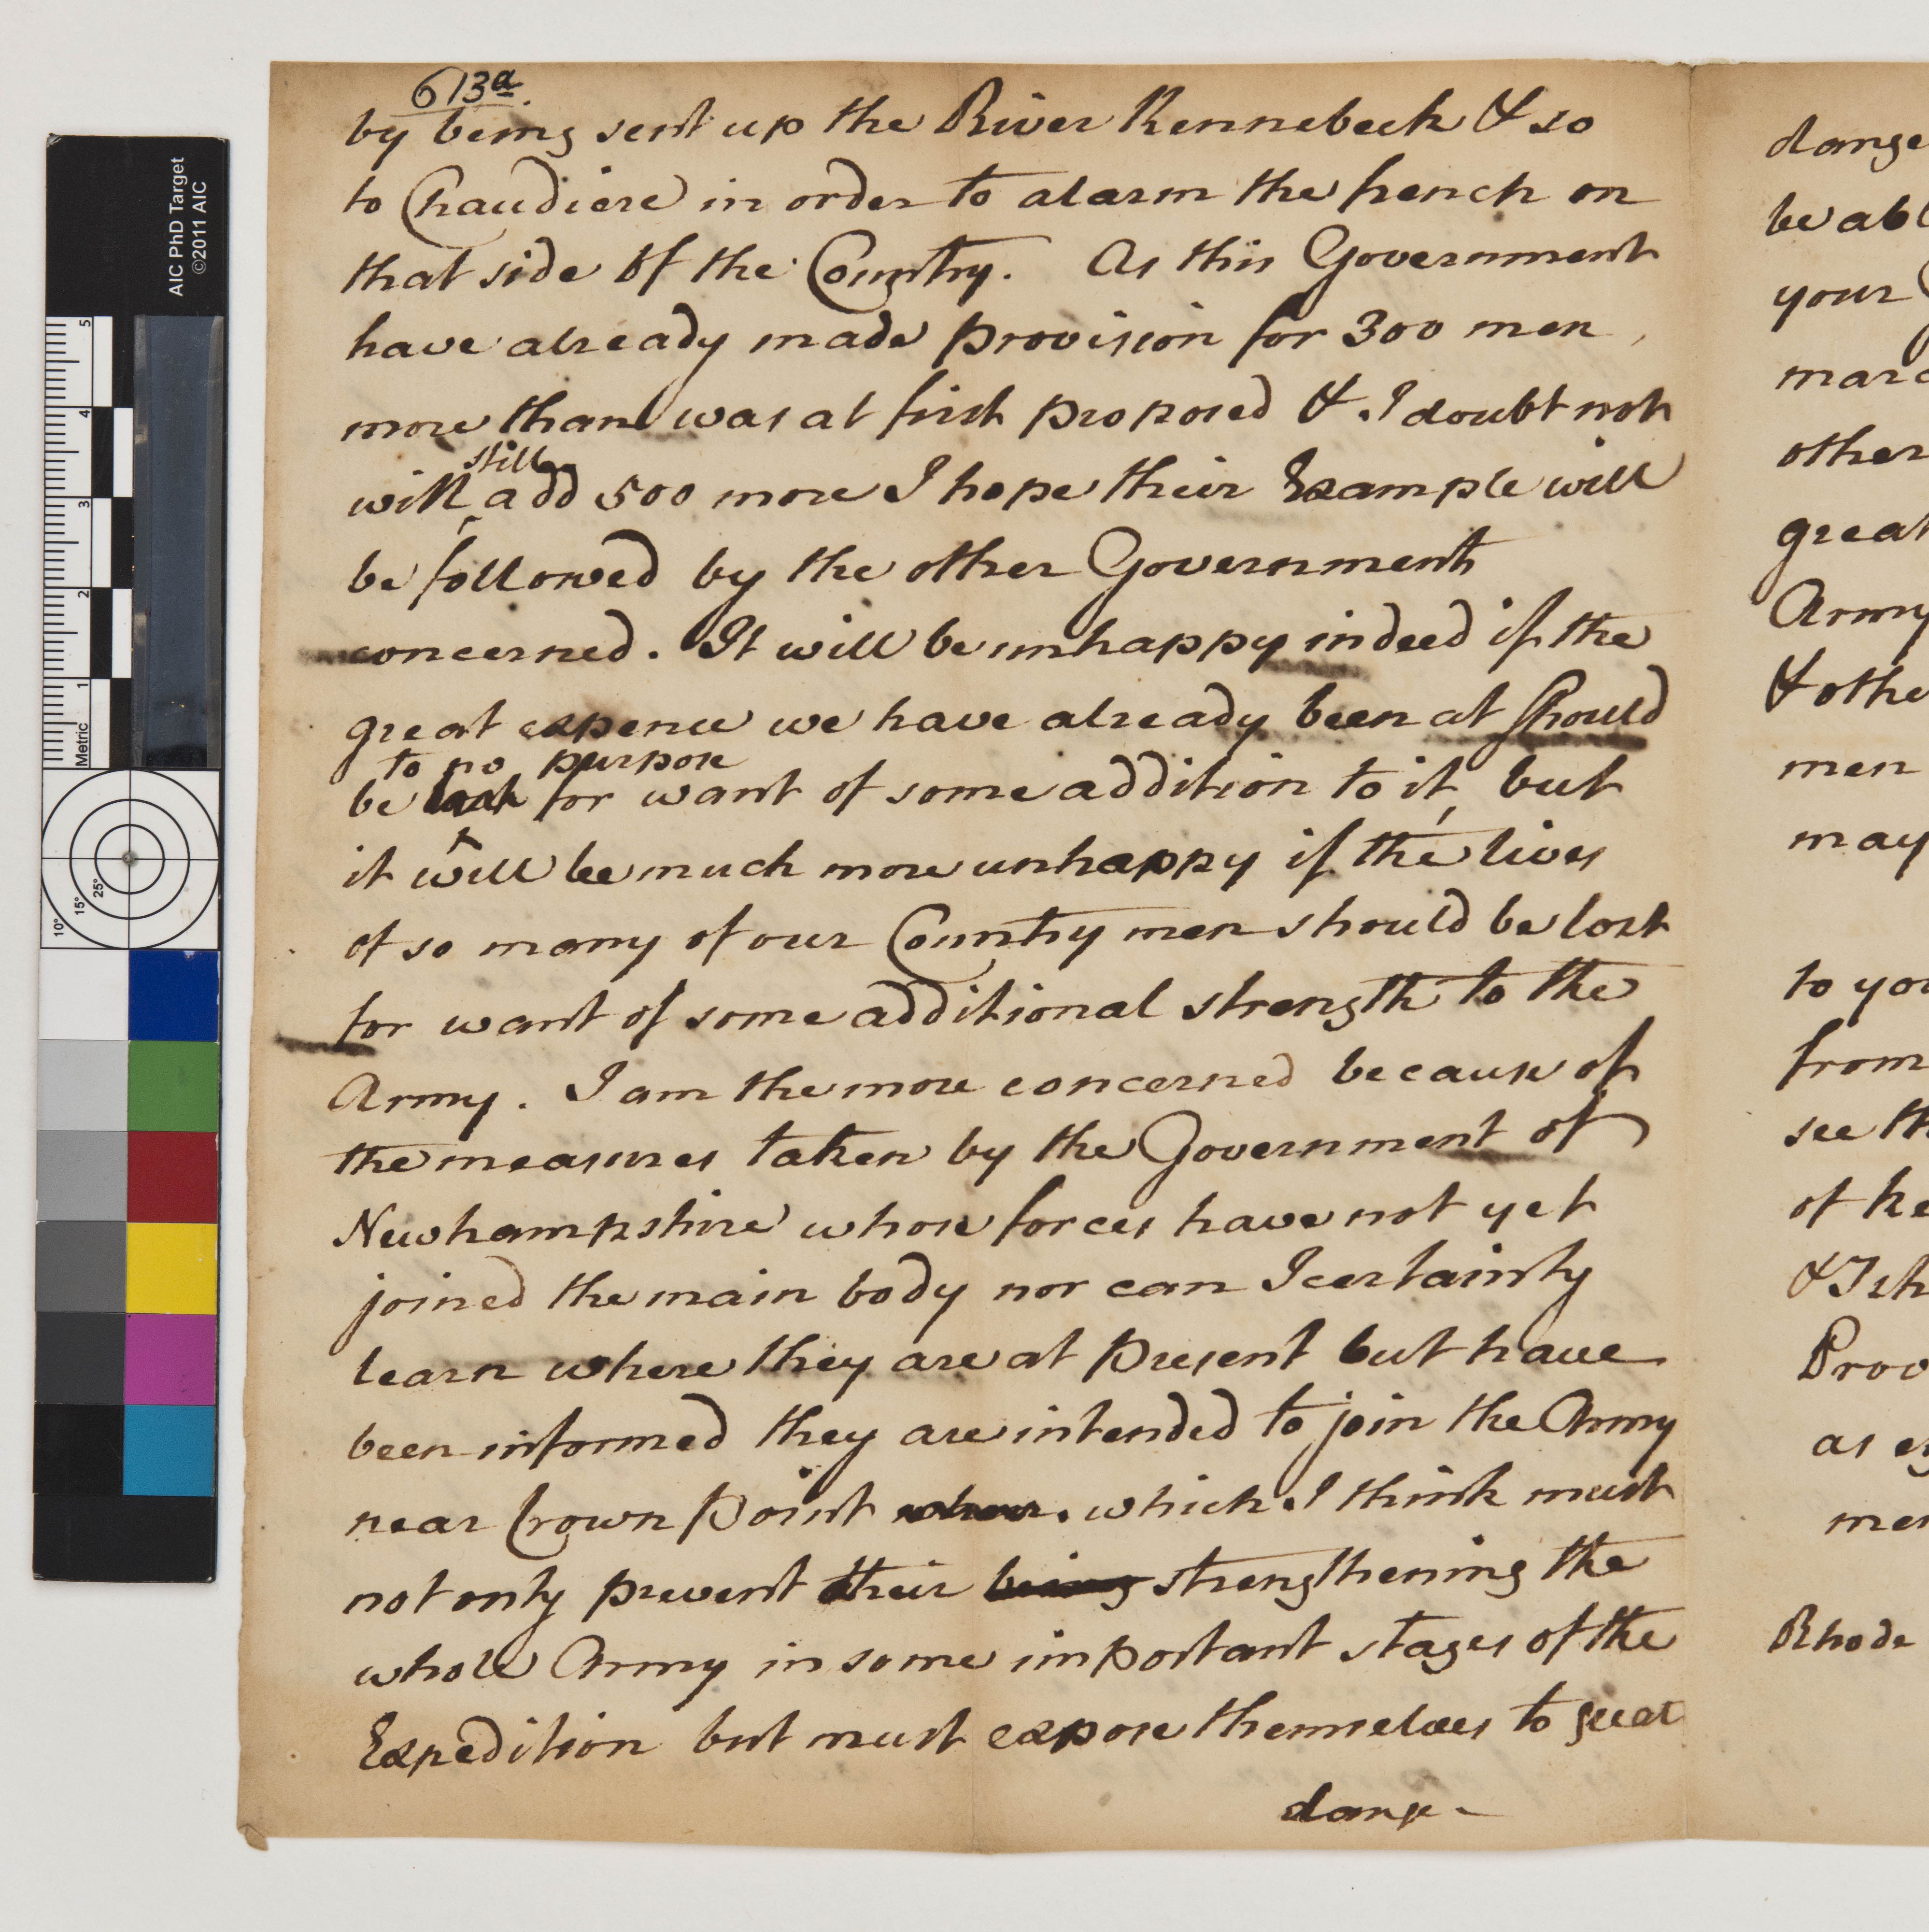 613a.
by being sent up the River Kennebeck & so
to Chaudiere in order to alarm the french on
that side of the Country. As this Government
have already made provision for 300 men,
more than was at first proposed & I doubt not
still
will add 500 more I hope their Example will
be followed by the other Governments
concerned. It will be unhappy indeed if the
great expence we have already been at should
to no purpose
be lost for want of some addition to it, but
it will be much more unhappy if the lives
of so many of our Country men should be lost
for want of some additional strength to the
Army. I am the more concerned because of
the measures taken by the Government of
Newhampshire whose forces have not yet
joined the main body nor can I certainly
learn where they are at present but have
been informed they are intended to join the Army
near Crown Point where. which I think must
not only prevent their being strengthening the
whole Army in some important stages of the
Expedition but must expose themselves to great
danger
dange
be abl
your
marc
other
great
Army
& othe
men
may
to you
from
see th
of ke
Prov
as
men
Rhode
AIC PhD Target
©2011 AIC
5
4
3
2
1
Metric
10°
15°
25°